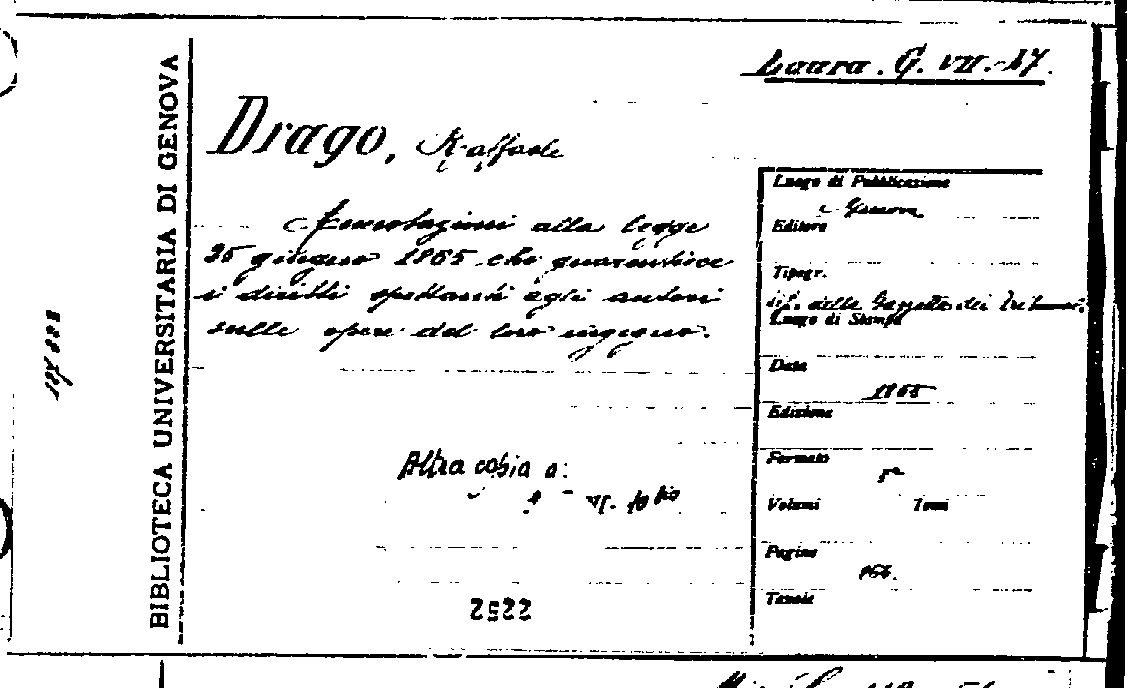 Laura. G. VII.-17.
BIBLIOTECA UNIVERSITARIA DI GENOVA
Drago, Raffaele
Annotazioni alla legge
25 giugno 1865 che guarentisce
i diritti spettanti agli autori
sulle opere del loro ingegno.
Altra copia a:
10 bis
2522
Luogo di Pubblicazione
Genova
Editore
Tipogr.
tip. della Gazzetta dei Tribunali
Luogo di Stampa
Data
1865
Edizione
Formato
Volumi Tomi
Pagine
Tavole